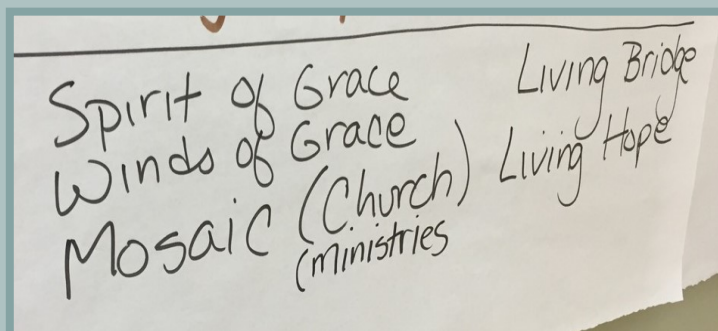 Spirit of Grace
Winds of Grace
Mosaic (Church)
(ministries
Living Bridge
Living Hope